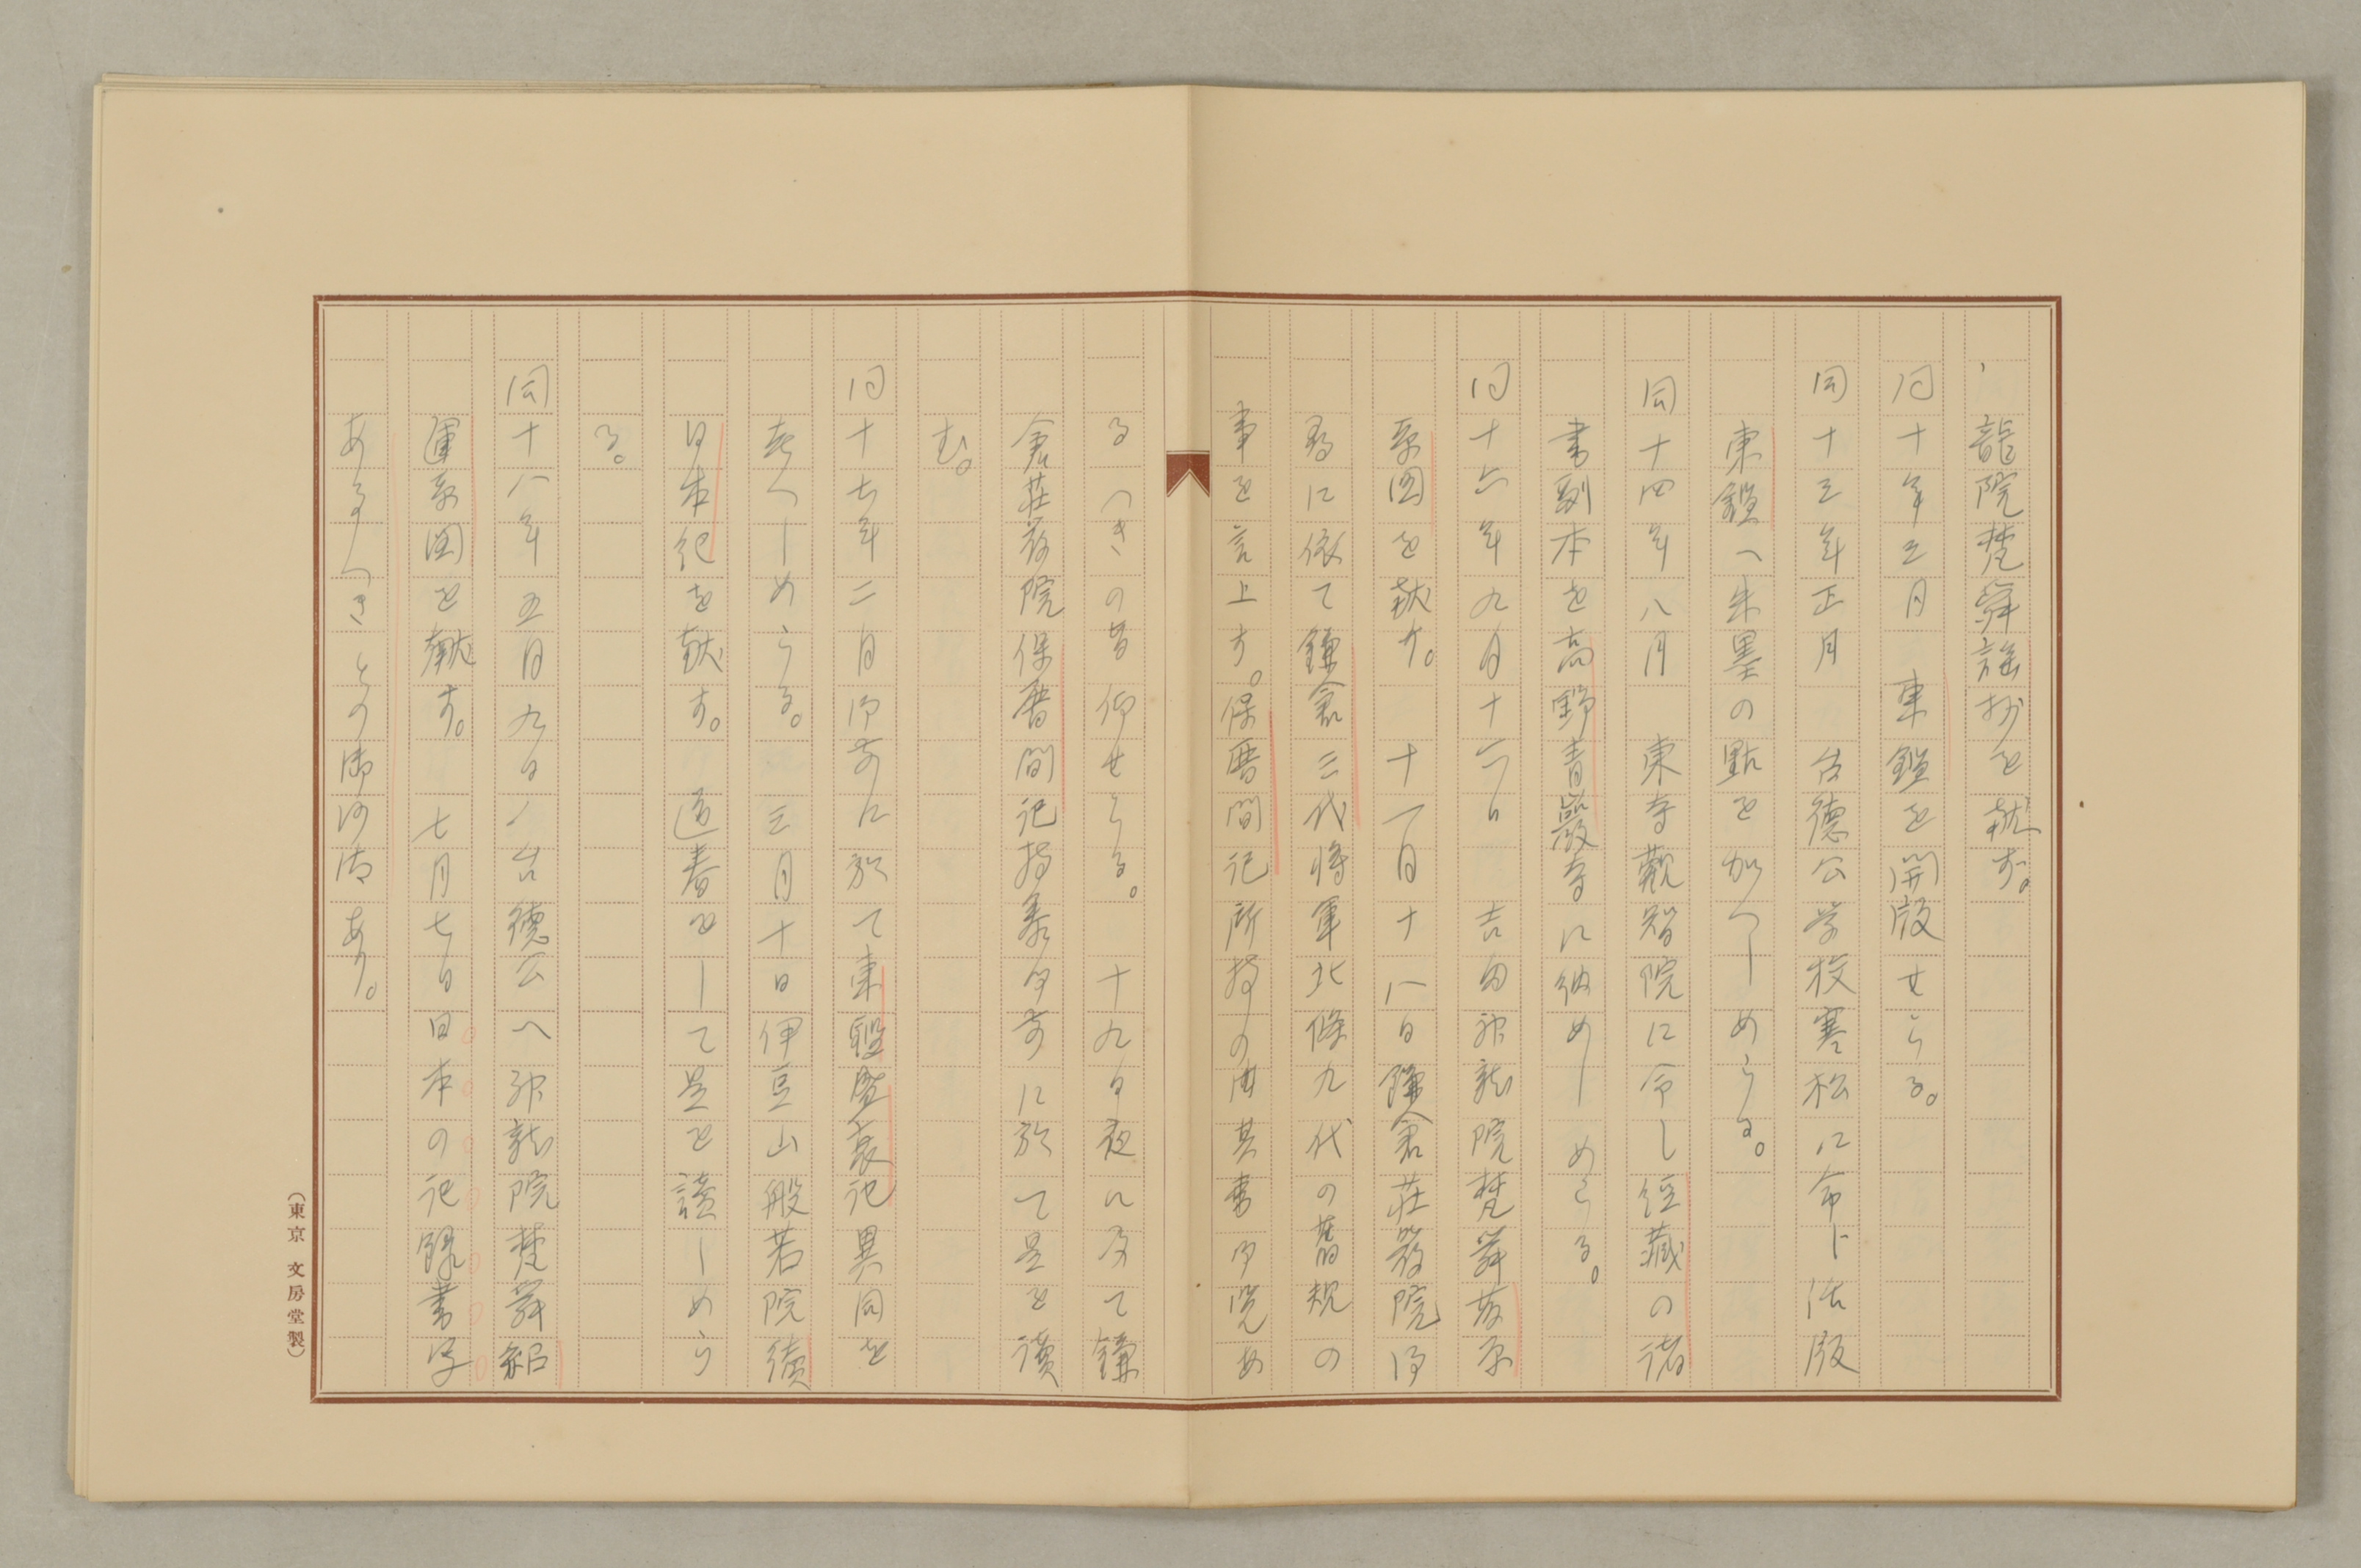 龍院梵舜謡抄を献ず。
同十年三月　東鑑を開版せらる。
同十三年正月　台徳公学校寒松に命じ活版
東鑑へ朱墨の點を加へしめらる。
同十四年八月　東寺觀智院に令し經藏の諸
書副本を高野青巖寺に納めしめらる。
同十六年九月十六日　吉田神龍院梵舜藤原
系図を献ず。　十一月十八日鎌倉荘嚴院
尋に依て鎌倉三代将軍北條九代の舊規の
事を言上す。保暦間記所持の由其書御覧あ
るへきの旨仰せらる。　十九日夜に及て鎌
倉荘嚴院保暦間記持参御前に於て是を讀
む。
同十七年二月御前に於て東鑑盛衰記異同を
考へしめらる。　三月十日伊豆山般若院續
日本紀を献す。　道春をして是を讀しめら
る。
同十八年五月九日　台徳公へ神龍院梵舜紹
運系図を献す。　七月七日日本の記録書写
あるへきとの御沙汰あり。
（東京　文房堂製）